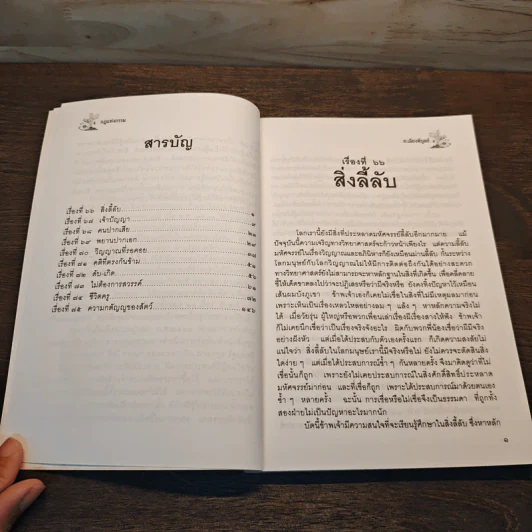 กฎแห่งกรรม
สารบัญ
เรื่องที่ ๖๖ สิ่งลี้ลับ ๑
เรื่องที่ ๖๗ เจ้าปัญญา ๗
เรื่องที่ ๖๘ คนปากเสีย ๒๑
เรื่องที่ ๖๙ พยานปากเอก ๒๗
เรื่องที่ ๗๐ วิญญาณที่รอคอย ๓๗
เรื่องที่ ๗๑ คดีที่ตรงกันข้าม
เรื่องที่ ๗๒ ดับ-เกิด
เรื่องที่ ๗๓ ไม่ต้องการสวรรค์
เรื่องที่ ๗๔ ชีวิตครู
เรื่องที่ ๗๕ ความกตัญญูของสัตว์
ท.เลียงพิบูลย์
เรื่องที่ ๖๖
สิ่งลี้ลับ
โลกเรานี้ยังมีสิ่งที่ประหลาดมหัศจรรย์ลี้ลับอีกมากมาย แม้
ปัจจุบันนี้ความเจริญทางวิทยาศาสตร์จะก้าวหน้าเพียงไร แต่ความลี้ลับ
มหัศจรรย์ในเรื่องวิญญาณและอภินิหารก็ยังเหมือนม่านลี้ลับ กั้นระหว่าง
โลกมนุษย์กับโลกวิญญาณไม่ให้มีการติดต่อถึงกันได้อย่างสะดวก
ทางวิทยาศาสตร์ยังไม่สามารถจะหาหลักฐานในสิ่งที่เกิดขึ้น เพื่อคลี่คลาย
ชี้ให้เด็ดขาดลงไปว่าจะปฏิเสธหรือว่ามีจริงหรือ ยังคงทิ้งปัญหาไว้เหมือน
เส้นผมบังภูเขา ข้าพเจ้าเองก็เคยไม่เชื่อในสิ่งที่ไม่มีเหตุผลมาก่อน
เพราะเห็นเป็นเรื่องเหลวไหลอย่างลม ๆ แล้ง ๆ หาหลักความจริงไม่
ได้ เมื่อวัยรุ่น ผู้ใหญ่หรือพวกเพื่อนเล่าเรื่องมีเรื่องลางให้ฟัง ข้าพเจ้า
ก็ไม่เคยนึกเชื่อว่าเป็นเรื่องจริงจังอะไร ผิดกับพวกพี่น้องเชื่อว่ามีจริง
อย่างฝังหัว แต่เมื่อได้ประสบกับตัวเองครั้งแรก ก็เกิดความสงสัยไม่
แน่ใจว่า สิ่งลี้ลับในโลกมนุษย์เรานี้มีจริงหรือไม่ ยังไม่ควรจะตัดสินสิ่ง
ใดง่าย ๆ แต่เมื่อได้ประสบซ้ำ ๆ กันหลายครั้ง จึงมาคิดดูว่าที่ไม่
เชื่อนั้นก็ถูก เพราะยังไม่เคยประสบการณ์ในสิ่งศักดิ์สิทธิ์ประหลาด
มหัศจรรย์มาก่อน และที่เชื่อก็ถูก เพราะได้ประสบการณ์มาด้วยตนเอง
ซ้ำ ๆ หลายครั้ง ฉะนั้น การเชื่อหรือไม่เชื่อจึงเป็นธรรมดา ที่ถูกทั้ง
สองฝ่ายไม่เป็นปัญหาอะไรมากนัก
บัดนี้ข้าพเจ้ามีความสนใจที่จะเรียนรู้ศึกษาในสิ่งลี้ลับ ซึ่งหาหลัก
๑